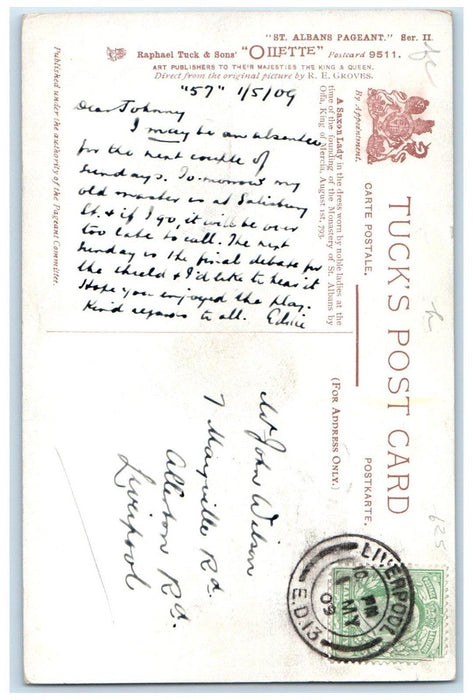 "ST. ALBANS PAGEANT." Ser. II.
Raphael Tuck & Sons' "OILETTE" Postcard 9511.
ART PUBLISHERS TO THEIR MAJESTIES THE KING & QUEEN.
Direct from the original picture by R. E. GROVES.
"57" 1/5/09
Dear Johnny
I may be an absentee
for the next couple of
Sundays. To-morrow my
old master is at Salisbury
St. & if I go, it will be over
too late to call. The next
Sunday is the final debate for
the shield & I'd like to hear it
Hope you enjoyed the play.
Kind regards to all. Edie
A Saxon Lady in the dress worn by noble ladies at the
time of the founding of the Monastery of St. Albans by
Offa, King of Mercia, August 1st, 793.
Published under the authority of the Pageant Committee.
By Appointment.
TUCK'S POST CARD
CARTE POSTALE.
POSTKARTE.
(FOR ADDRESS ONLY.)
Mr John Wilson
7 Maryville Rd.
Allerton Rd.
Liverpool
LIVERPOOL
PM
1 MY
09
E.D.13
625